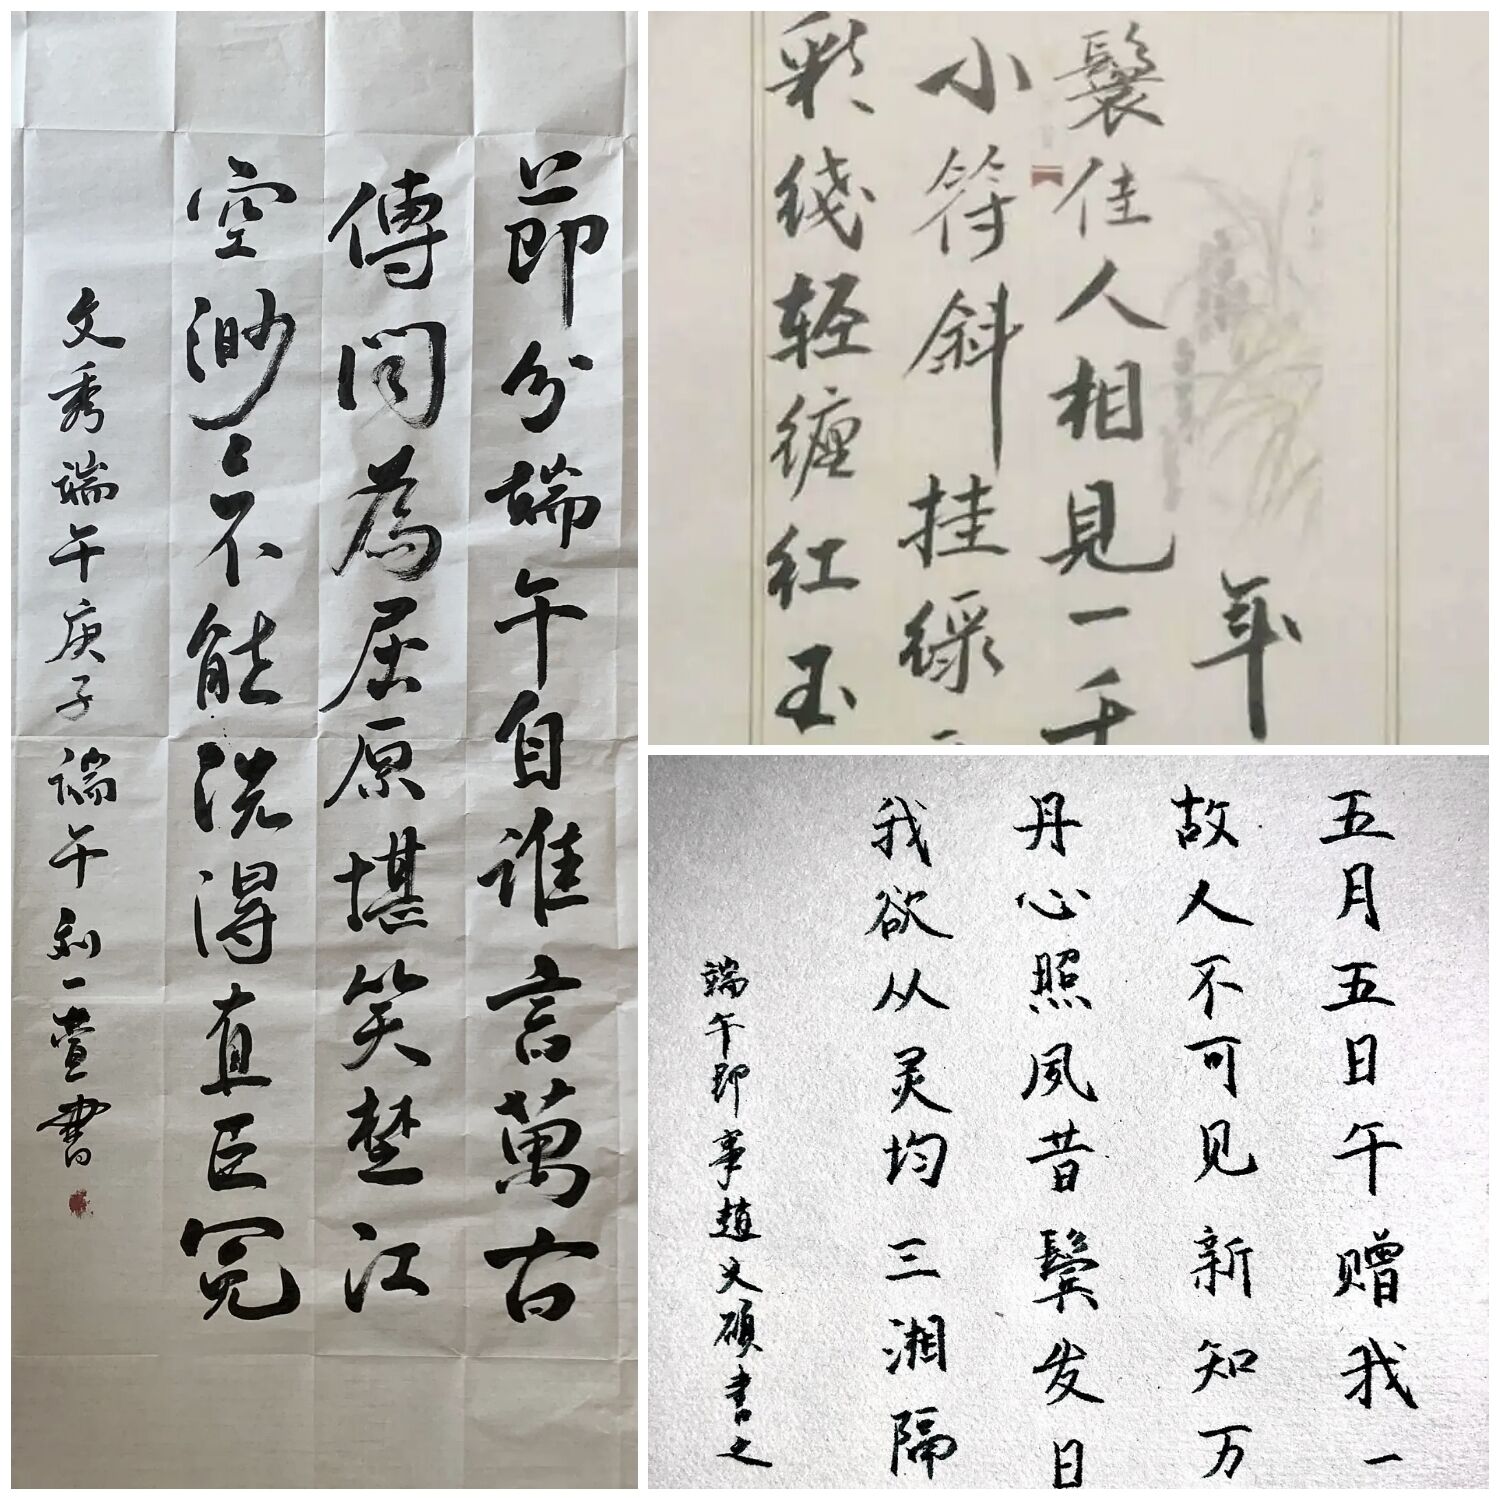 節分端午自誰言萬古
傳聞為屈原堪笑楚江
空渺々不能洗得直臣冤
文秀端午庚子端午刘一萱書
年
鬟佳人相見一千
小符斜挂绿
彩线轻缠红玉
五月五日午赠我一
故人不可见新知万
丹心照夙昔鬓发日
我欲从灵均三湘隔
端午即事趙文碩書之